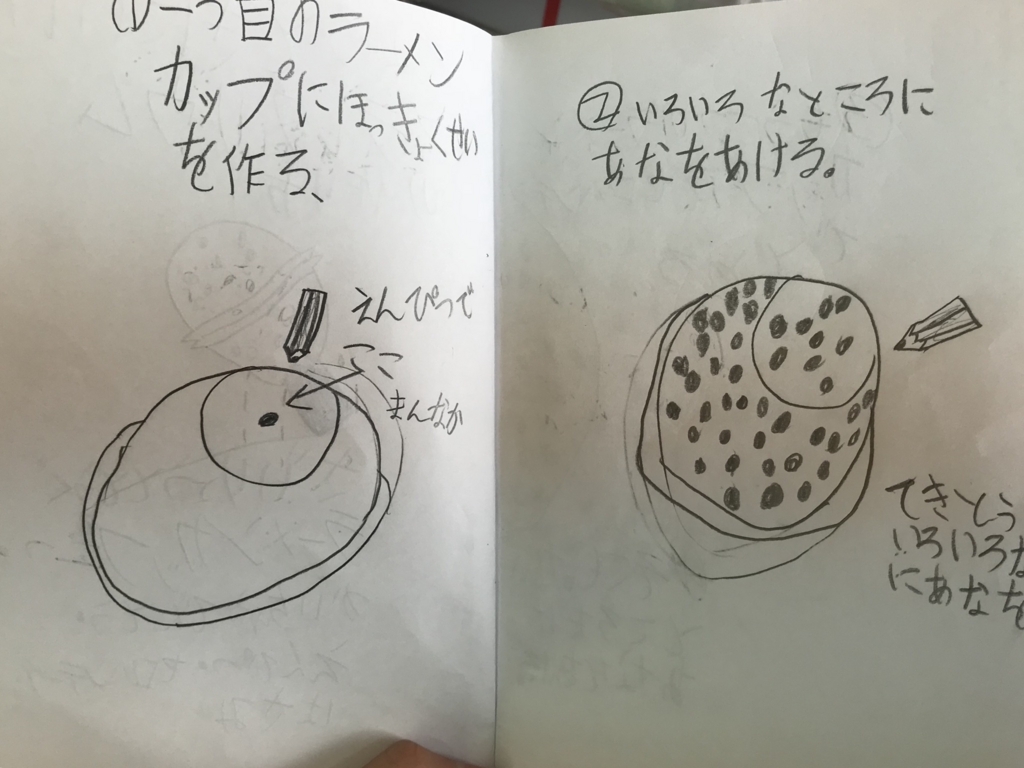 ①一つ目のラーメン
カップにほっきょくせい
を作る、
えんぴつで
ここ
まんなか
②いろいろなところに
あなをあける。
てきとう
いろいろな
にあなを